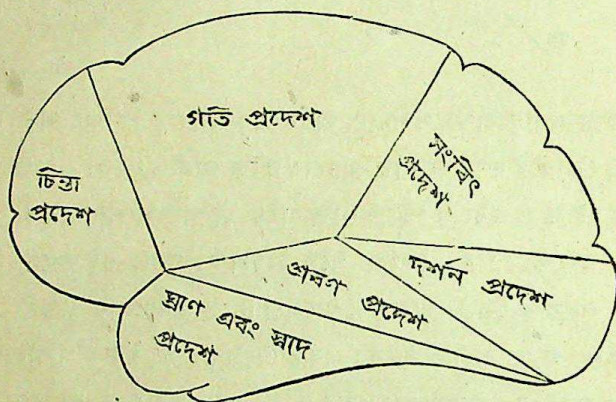 গতি প্রদেশ
চিন্তা
প্রদেশ
সংবিৎ
প্রদেশ
দর্শন প্রদেশ
শ্রবণ প্রদেশ
ঘ্রাণ এবং স্বাদ
প্রদেশ